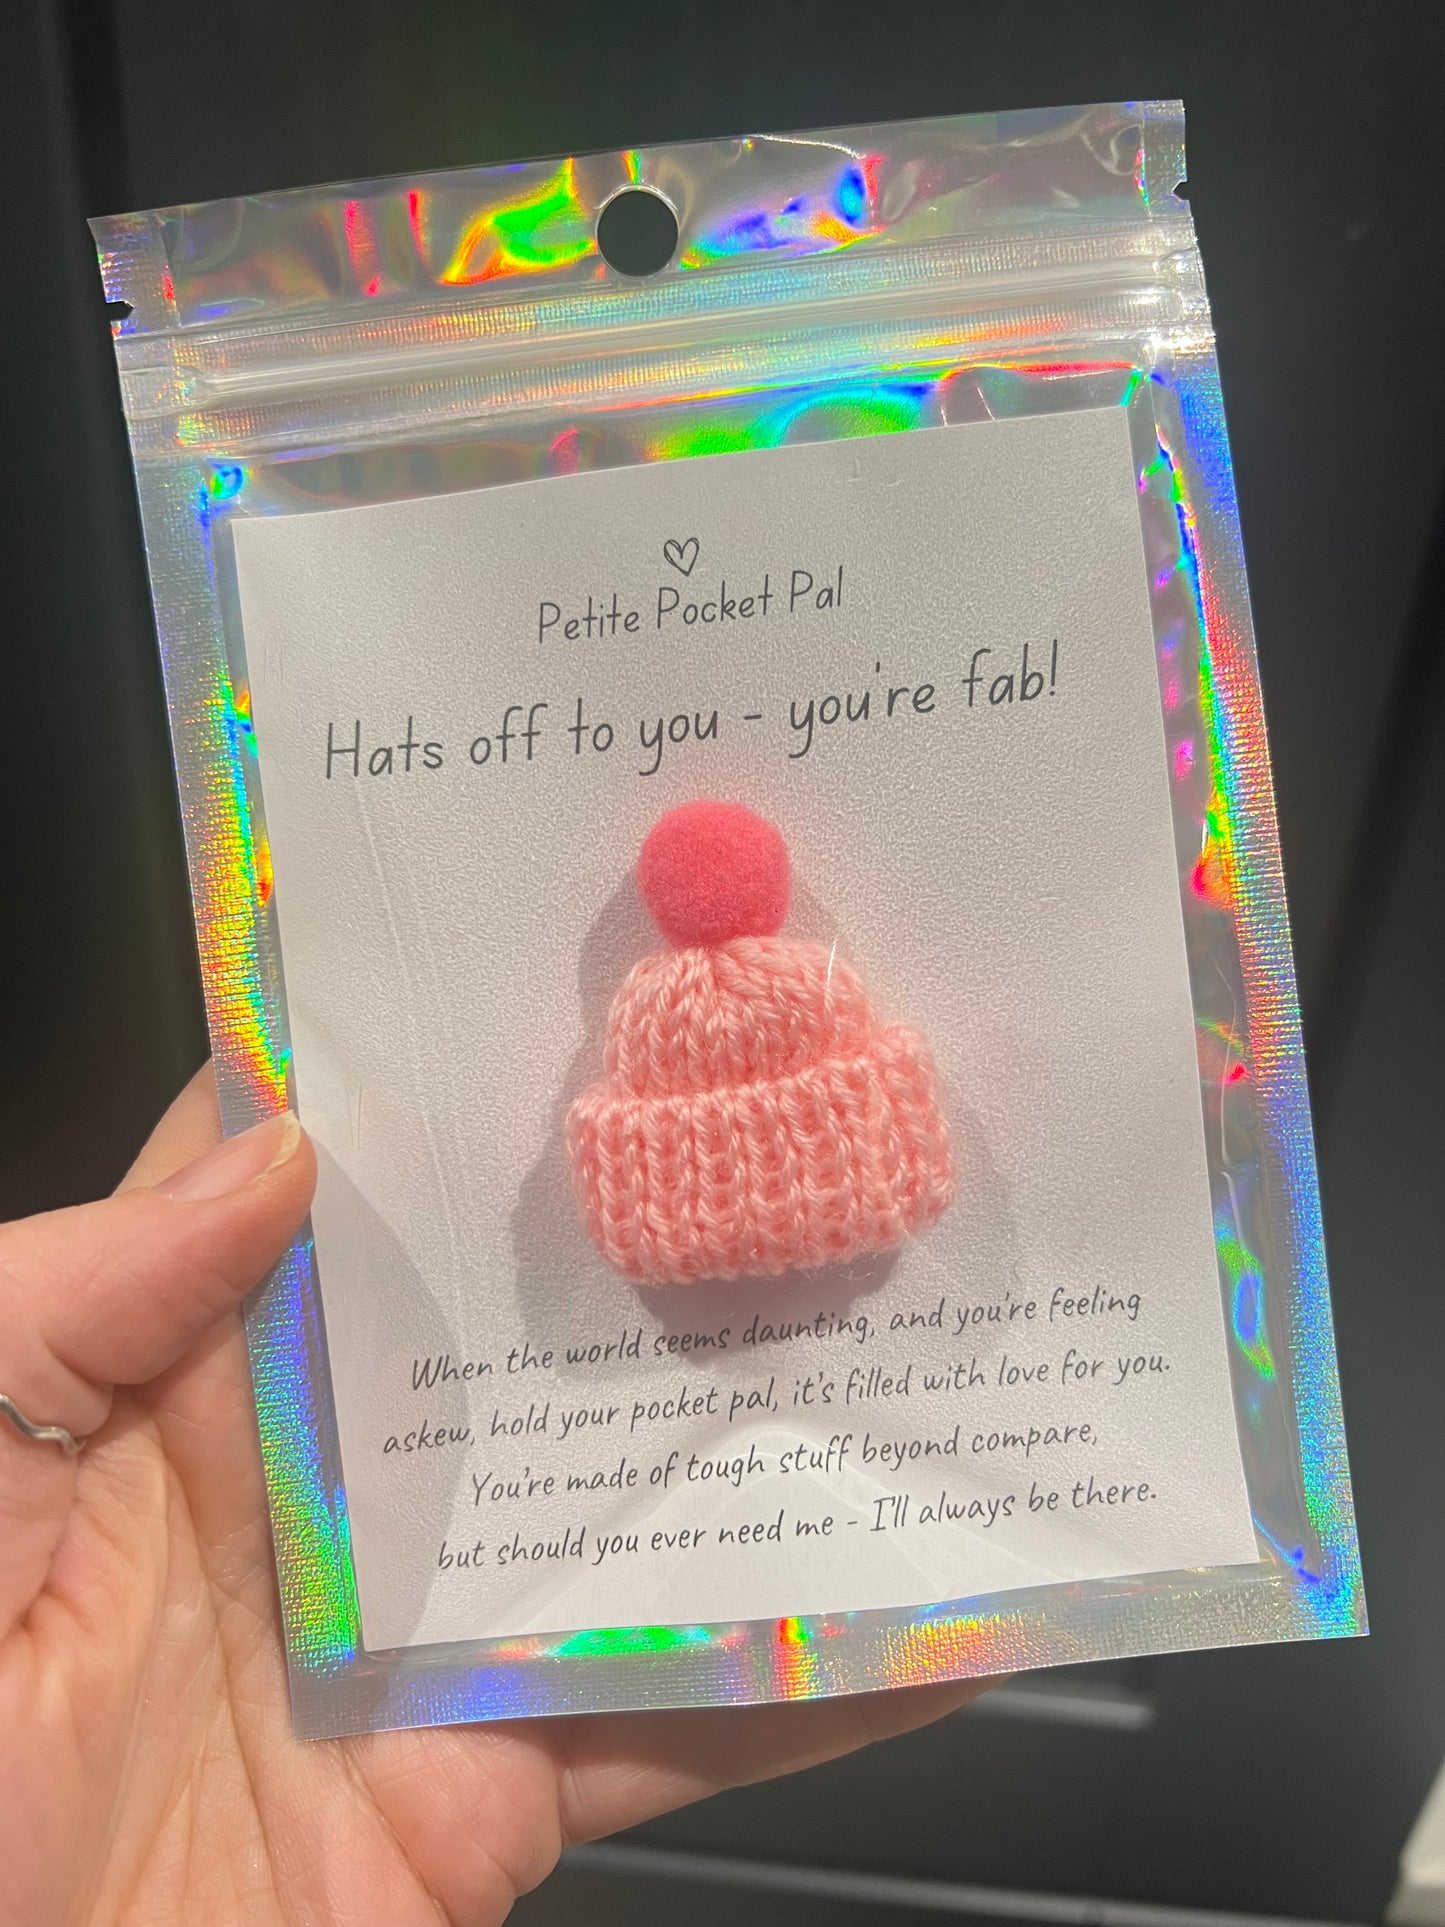 Petite Pocket Pal
Hats off to you - you're fab!
When the world seems daunting, and you're feeling
askew, hold your pocket pal, it's filled with love for you.
You're made of tough stuff beyond compare,
but should you ever need me - I'll always be there.